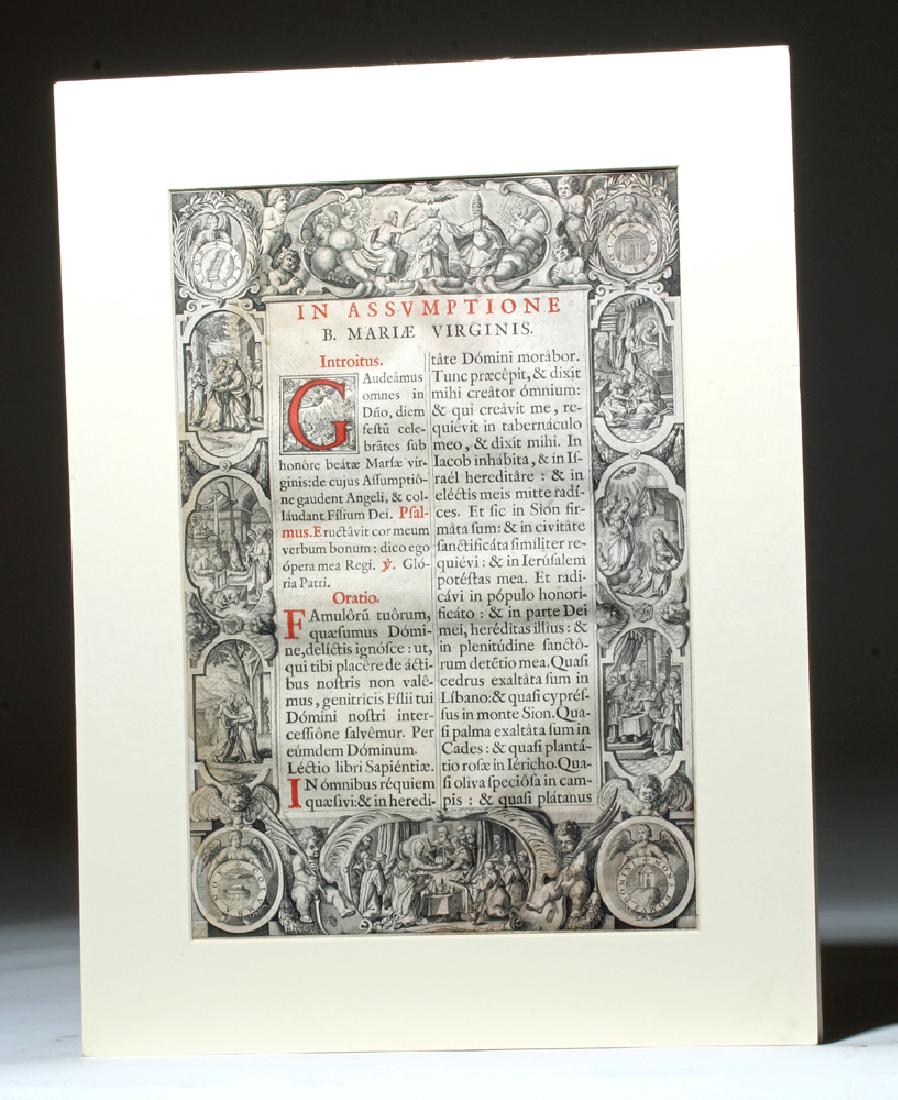 IN ASSVMPTIONE
B. MARIÆ VIRGINIS.
Introitus.
GAudeâmus
omnes in
Dño, diem
festũ cele-
brãtes sub
honôre beátæ Maríæ vír-
ginis: de cujus Assumptiô-
ne gaudent Angeli, & col-
láudant Fílium Dei. Psal-
mus. Eructâvit cor meum
verbum bonum: dico ego
ópera mea Regi. ℣. Gló-
ria Patri.
Oratio.
FAmulôrũ tuôrum,
quæsumus Dómi-
ne, delíctis ignósce: ut,
qui tibi placêre de ácti-
bus nostris non valê-
mus, genitrícis Fílii tui
Dómini nostri inter-
cessiône salvêmur. Per
eúmdem Dóminum.
Léctio libri Sapiéntiæ.
IN ómnibus réquiem
quæsívi: & in heredi-
tâte Dómini morâbor.
Tunc præcêpit, & dixit
mihi creâtor ómnium:
& qui creâvit me, re-
quiêvit in tabernáculo
meo, & dixit mihi. In
Iacob inhábita, & in Is-
raél hereditâre: & in
eléctis meis mitte radí-
ces. Et sic in Sion fir-
mâta sum: & in civitâte
sanctificáta simíliter re-
quiévi: & in Ierúsalem
potéstas mea. Et radi-
cávi in pópulo honori-
ficáto: & in parte Dei
mei, heréditas illíus: &
in plenitúdine sanctô-
rum deténtio mea. Quasi
cedrus exaltâta sum in
Líbano: & quasi cyprés-
sus in monte Sion. Qua-
si palma exaltâta sum in
Cades: & quasi plantá-
tio rosæ in Iéricho. Qua-
si oliva speciósa in cam-
pis: & quasi plátanus